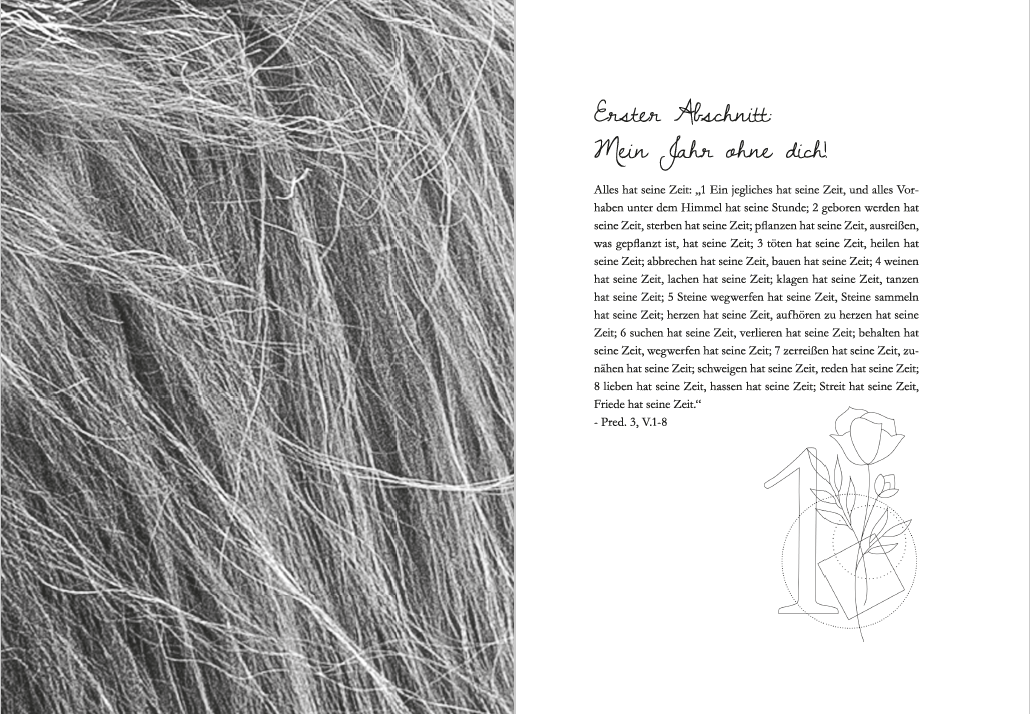 Erster Abschnitt:
Mein Jahr ohne dich!
Alles hat seine Zeit: „1 Ein jegliches hat seine Zeit, und alles Vor-
haben unter dem Himmel hat seine Stunde; 2 geboren werden hat
seine Zeit, sterben hat seine Zeit; pflanzen hat seine Zeit, ausreißen,
was gepflanzt ist, hat seine Zeit; 3 töten hat seine Zeit, heilen hat
seine Zeit; abbrechen hat seine Zeit, bauen hat seine Zeit; 4 weinen
hat seine Zeit, lachen hat seine Zeit; klagen hat seine Zeit, tanzen
hat seine Zeit; 5 Steine wegwerfen hat seine Zeit, Steine sammeln
hat seine Zeit; herzen hat seine Zeit, aufhören zu herzen hat seine
Zeit; 6 suchen hat seine Zeit, verlieren hat seine Zeit; behalten hat
seine Zeit, wegwerfen hat seine Zeit; 7 zerreißen hat seine Zeit, zu-
nähen hat seine Zeit; schweigen hat seine Zeit, reden hat seine Zeit;
8 lieben hat seine Zeit, hassen hat seine Zeit; Streit hat seine Zeit,
Friede hat seine Zeit.“
- Pred. 3, V.1-8
1